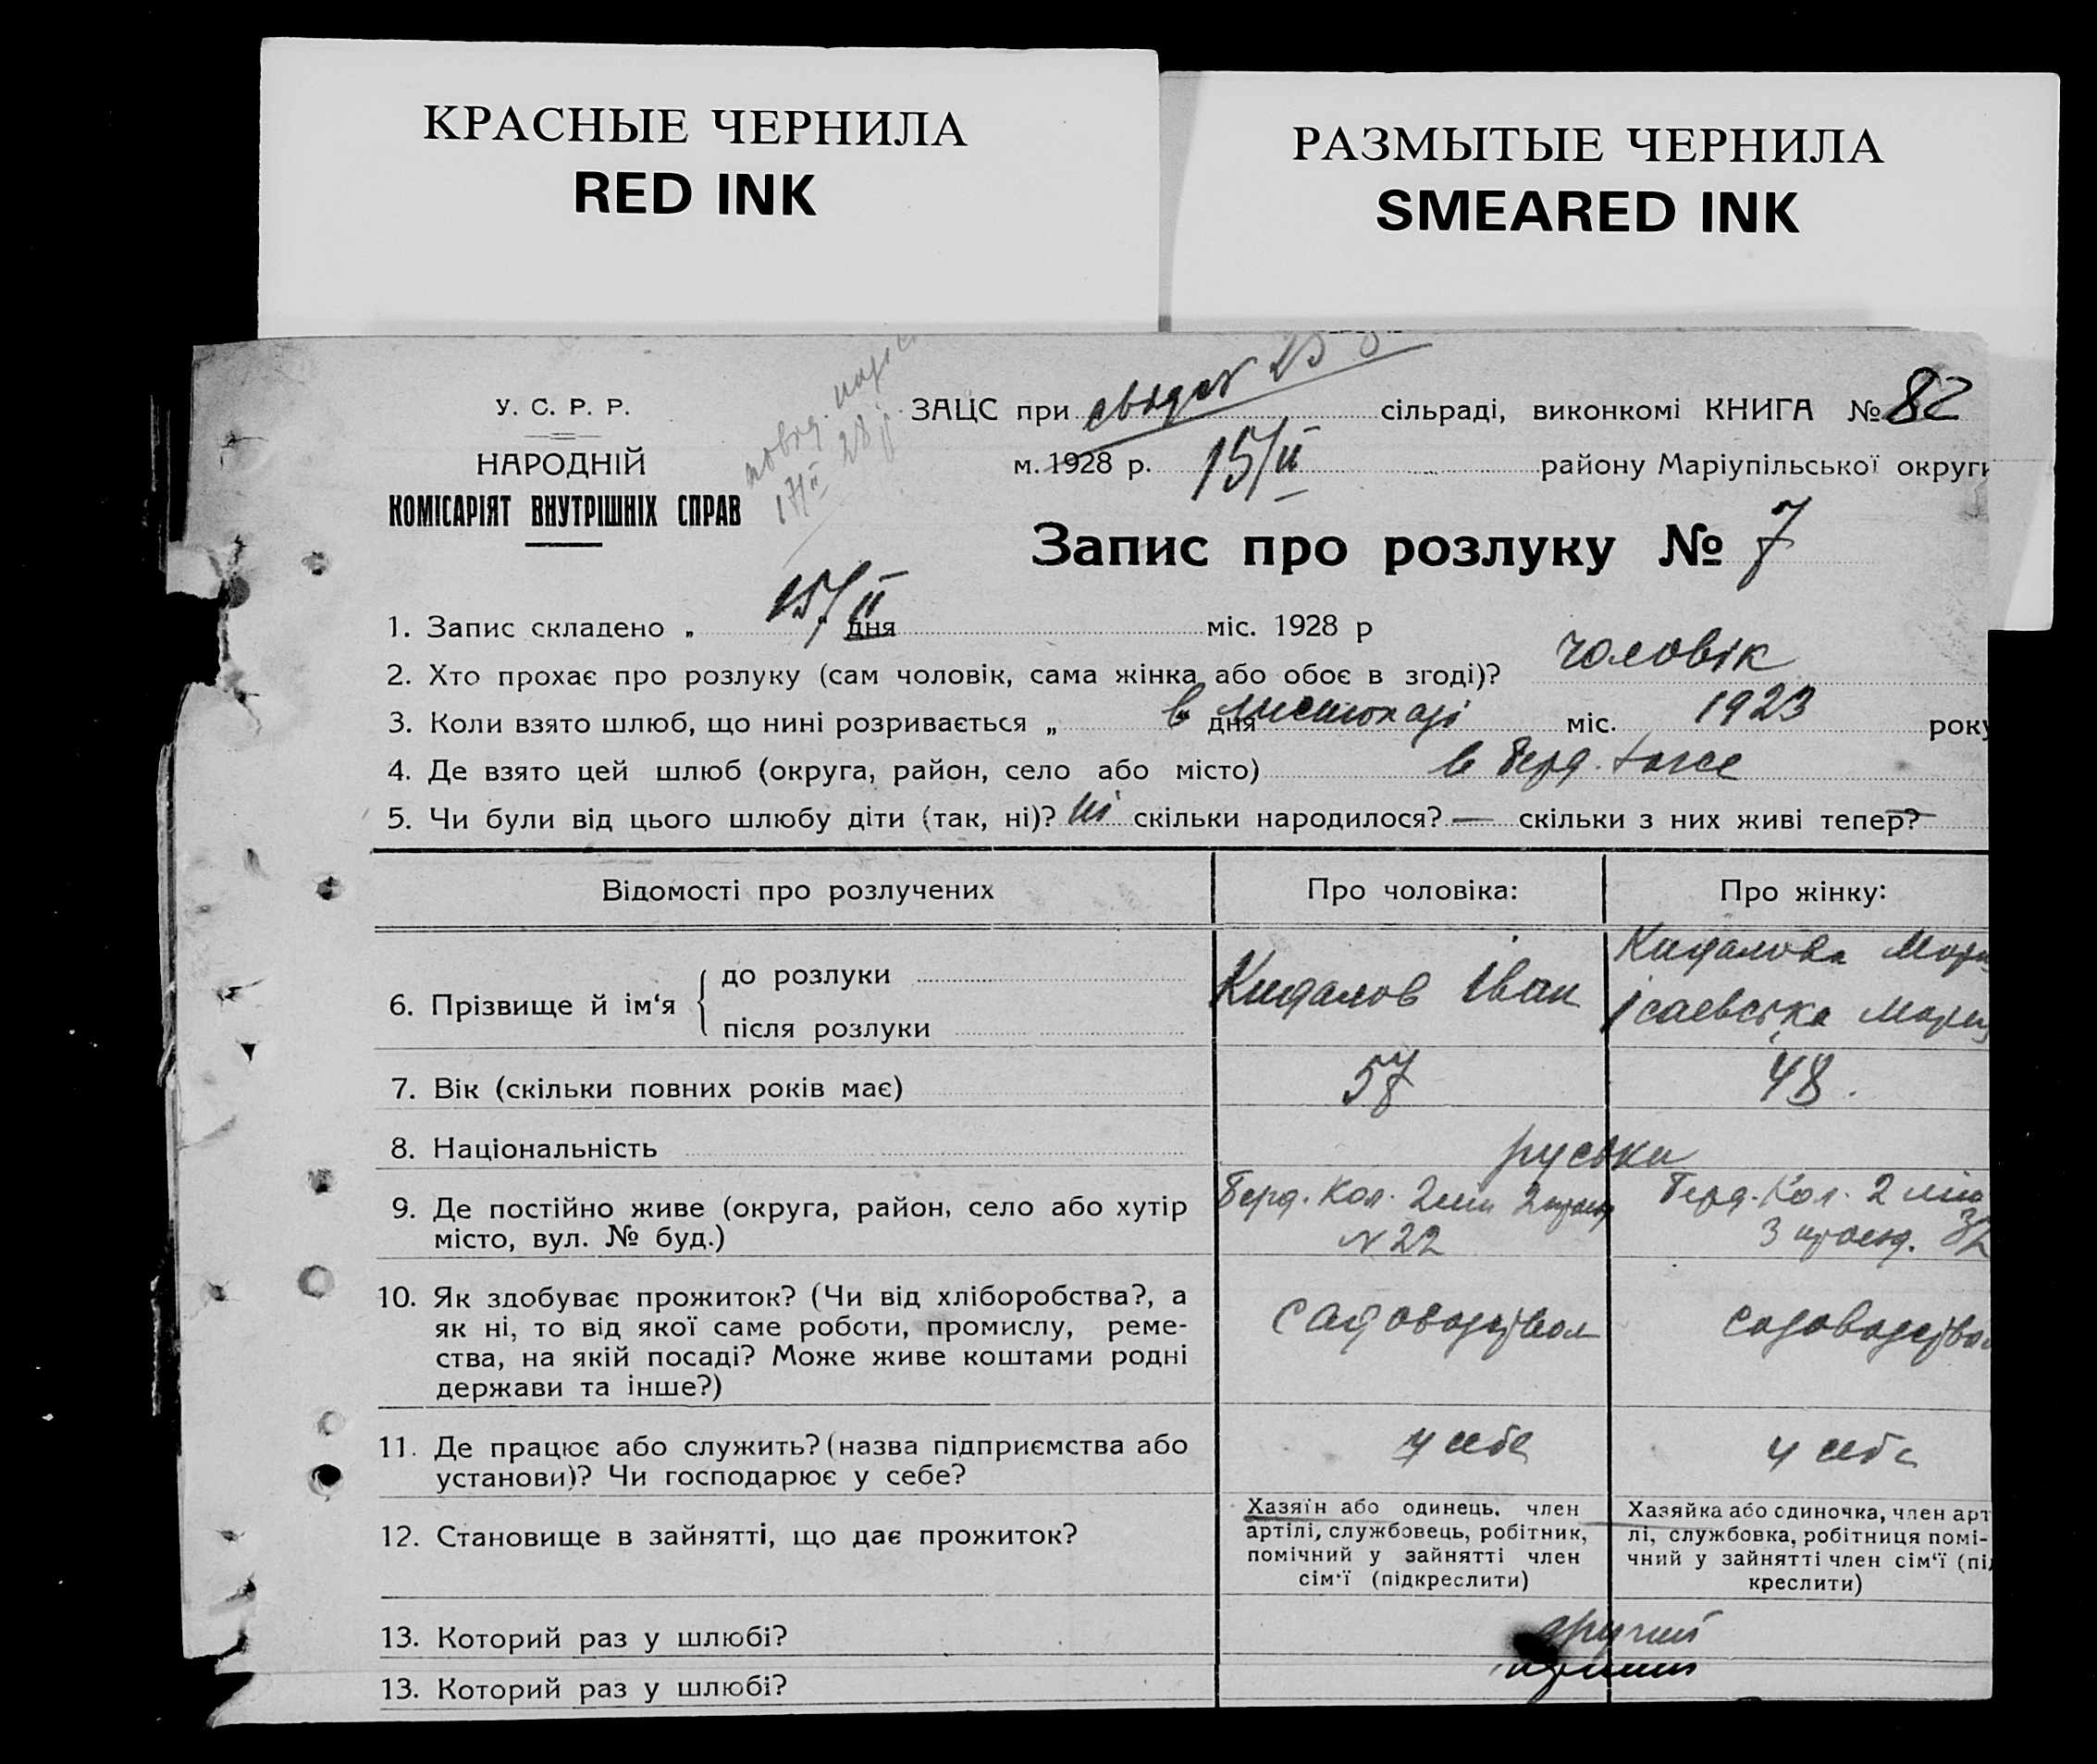 КРАСНЫЕ ЧЕРНИЛА
RED INK
РАЗМЫТЫЕ ЧЕРНИЛА
SMEARED INK
У. С. Р. Р.
НАРОДНІЙ
КОМІСАРІЯТ ВНУТРІШНІХ СПРАВ
17/II 28
ЗАЦС при сільраді, виконкомі КНИГА № 82
м. 1928 р. 15/II району Маріупільської округи
Запис про розлуку № 7
1. Запис складено „ 15/II " дня міс. 1928 р
2. Хто прохає про розлуку (сам чоловік, сама жінка або обоє в згоді)? чоловік
3. Коли взято шлюб, що нині розривається „ в " дня листопаді міс. 1923 року
4. Де взято цей шлюб (округа, район, село або місто) в Берд.
5. Чи були від цього шлюбу діти (так, ні)? ні скільки народилося? — скільки з них живі тепер? —
Відомості про розлучених
Про чоловіка:
Про жінку:
6. Прізвище й ім‘я { до розлуки
після розлуки
Кидалов Іван
Кидалова Мари
Ісаевська Мари
7. Вік (скільки повних років має) 57 48.
8. Національність руськи
9. Де постійно живе (округа, район, село або хутір
місто, вул. № буд.)
Берд. Кол. 2 лін 2 проезд
N 22
Берд. Кол. 2 лін
3 проезд. 32
10. Як здобуває прожиток? (Чи від хліборобства?, а
як ні, то від якої саме роботи, промислу, реме-
ства, на якій посаді? Може живе коштами родні
держави та інше?)
садоводством
садоводство
11. Де працює або служить? (назва підприємства або
установи)? Чи господарює у себе?
у себе
у себе
12. Становище в зайнятті, що дає прожиток?
Хазяїн або одинець. член
артілі, службовець, робітник,
помічний у зайнятті член
сім‘ї (підкреслити)
Хазяйка або одиночка, член арт
лі, службовка, робітниця помі-
чний у зайнятті член сім‘ї (під
креслити)
13. Которий раз у шлюбі? другий
13. Которий раз у шлюбі?